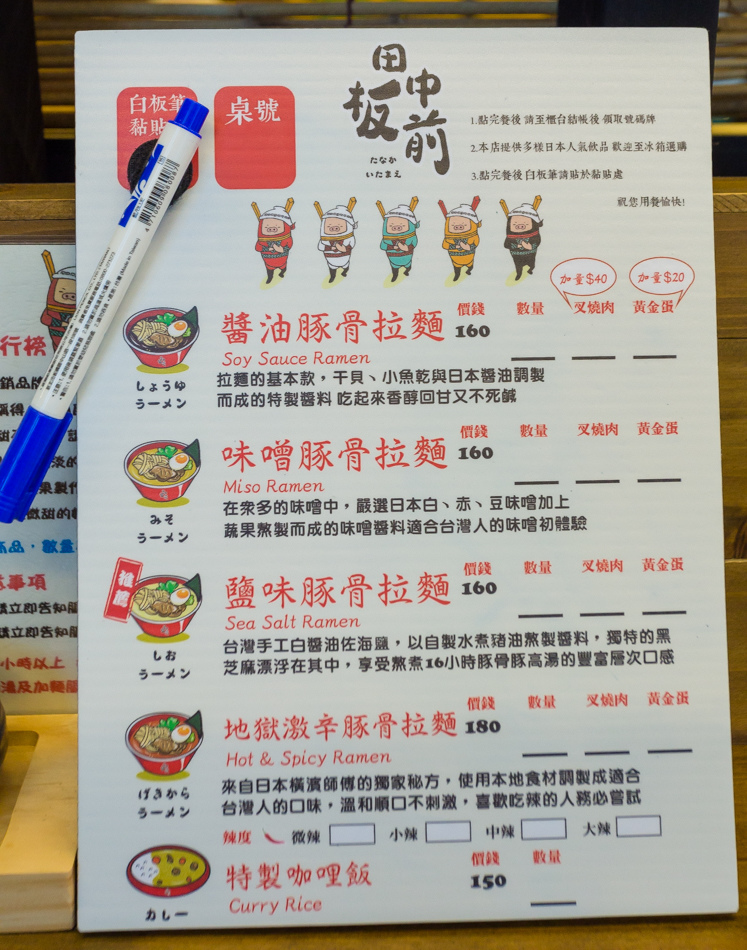 白板筆
黏貼
桌號
田中
板前
たなか
いたまえ
1.點完餐後 請至櫃台結帳後 領取號碼牌
2.本店提供多樣日本人氣飲品 歡迎至冰箱選購
3.點完餐後 白板筆請貼於黏貼處
祝您用餐愉快!
加量$40
加量$20
價錢 數量 叉燒肉 黃金蛋
醬油豚骨拉麵 160
Soy Sauce Ramen
しょうゆ
ラーメン
拉麵的基本款，干貝、小魚乾與日本醬油調製
而成的特製醬料 吃起來香醇回甘又不死鹹
價錢 數量 叉燒肉 黃金蛋
味噌豚骨拉麵 160
Miso Ramen
みそ
ラーメン
在眾多的味噌中，嚴選日本白、赤、豆味噌加上
蔬果熬製而成的味噌醬料適合台灣人的味噌初體驗
價錢 數量 叉燒肉 黃金蛋
推薦
鹽味豚骨拉麵 160
Sea Salt Ramen
しお
ラーメン
台灣手工白醬油佐海鹽，以自製水煮豬油熬製醬料，獨特的黑
芝麻漂浮在其中，享受熬煮16小時豚骨豚高湯的豐富層次口感
價錢 數量 叉燒肉 黃金蛋
地獄激辛豚骨拉麵 180
Hot & Spicy Ramen
げきから
ラーメン
來自日本橫濱師傅的獨家秘方，使用本地食材調製成適合
台灣人的口味，溫和順口不刺激，喜歡吃辣的人務必嘗試
辣度 微辣 小辣 中辣 大辣
價錢 數量
特製咖哩飯 150
Curry Rice
カレー
行榜
銷品牌
事項
請立即告知
請立即告知
小時以上
湯及加麵